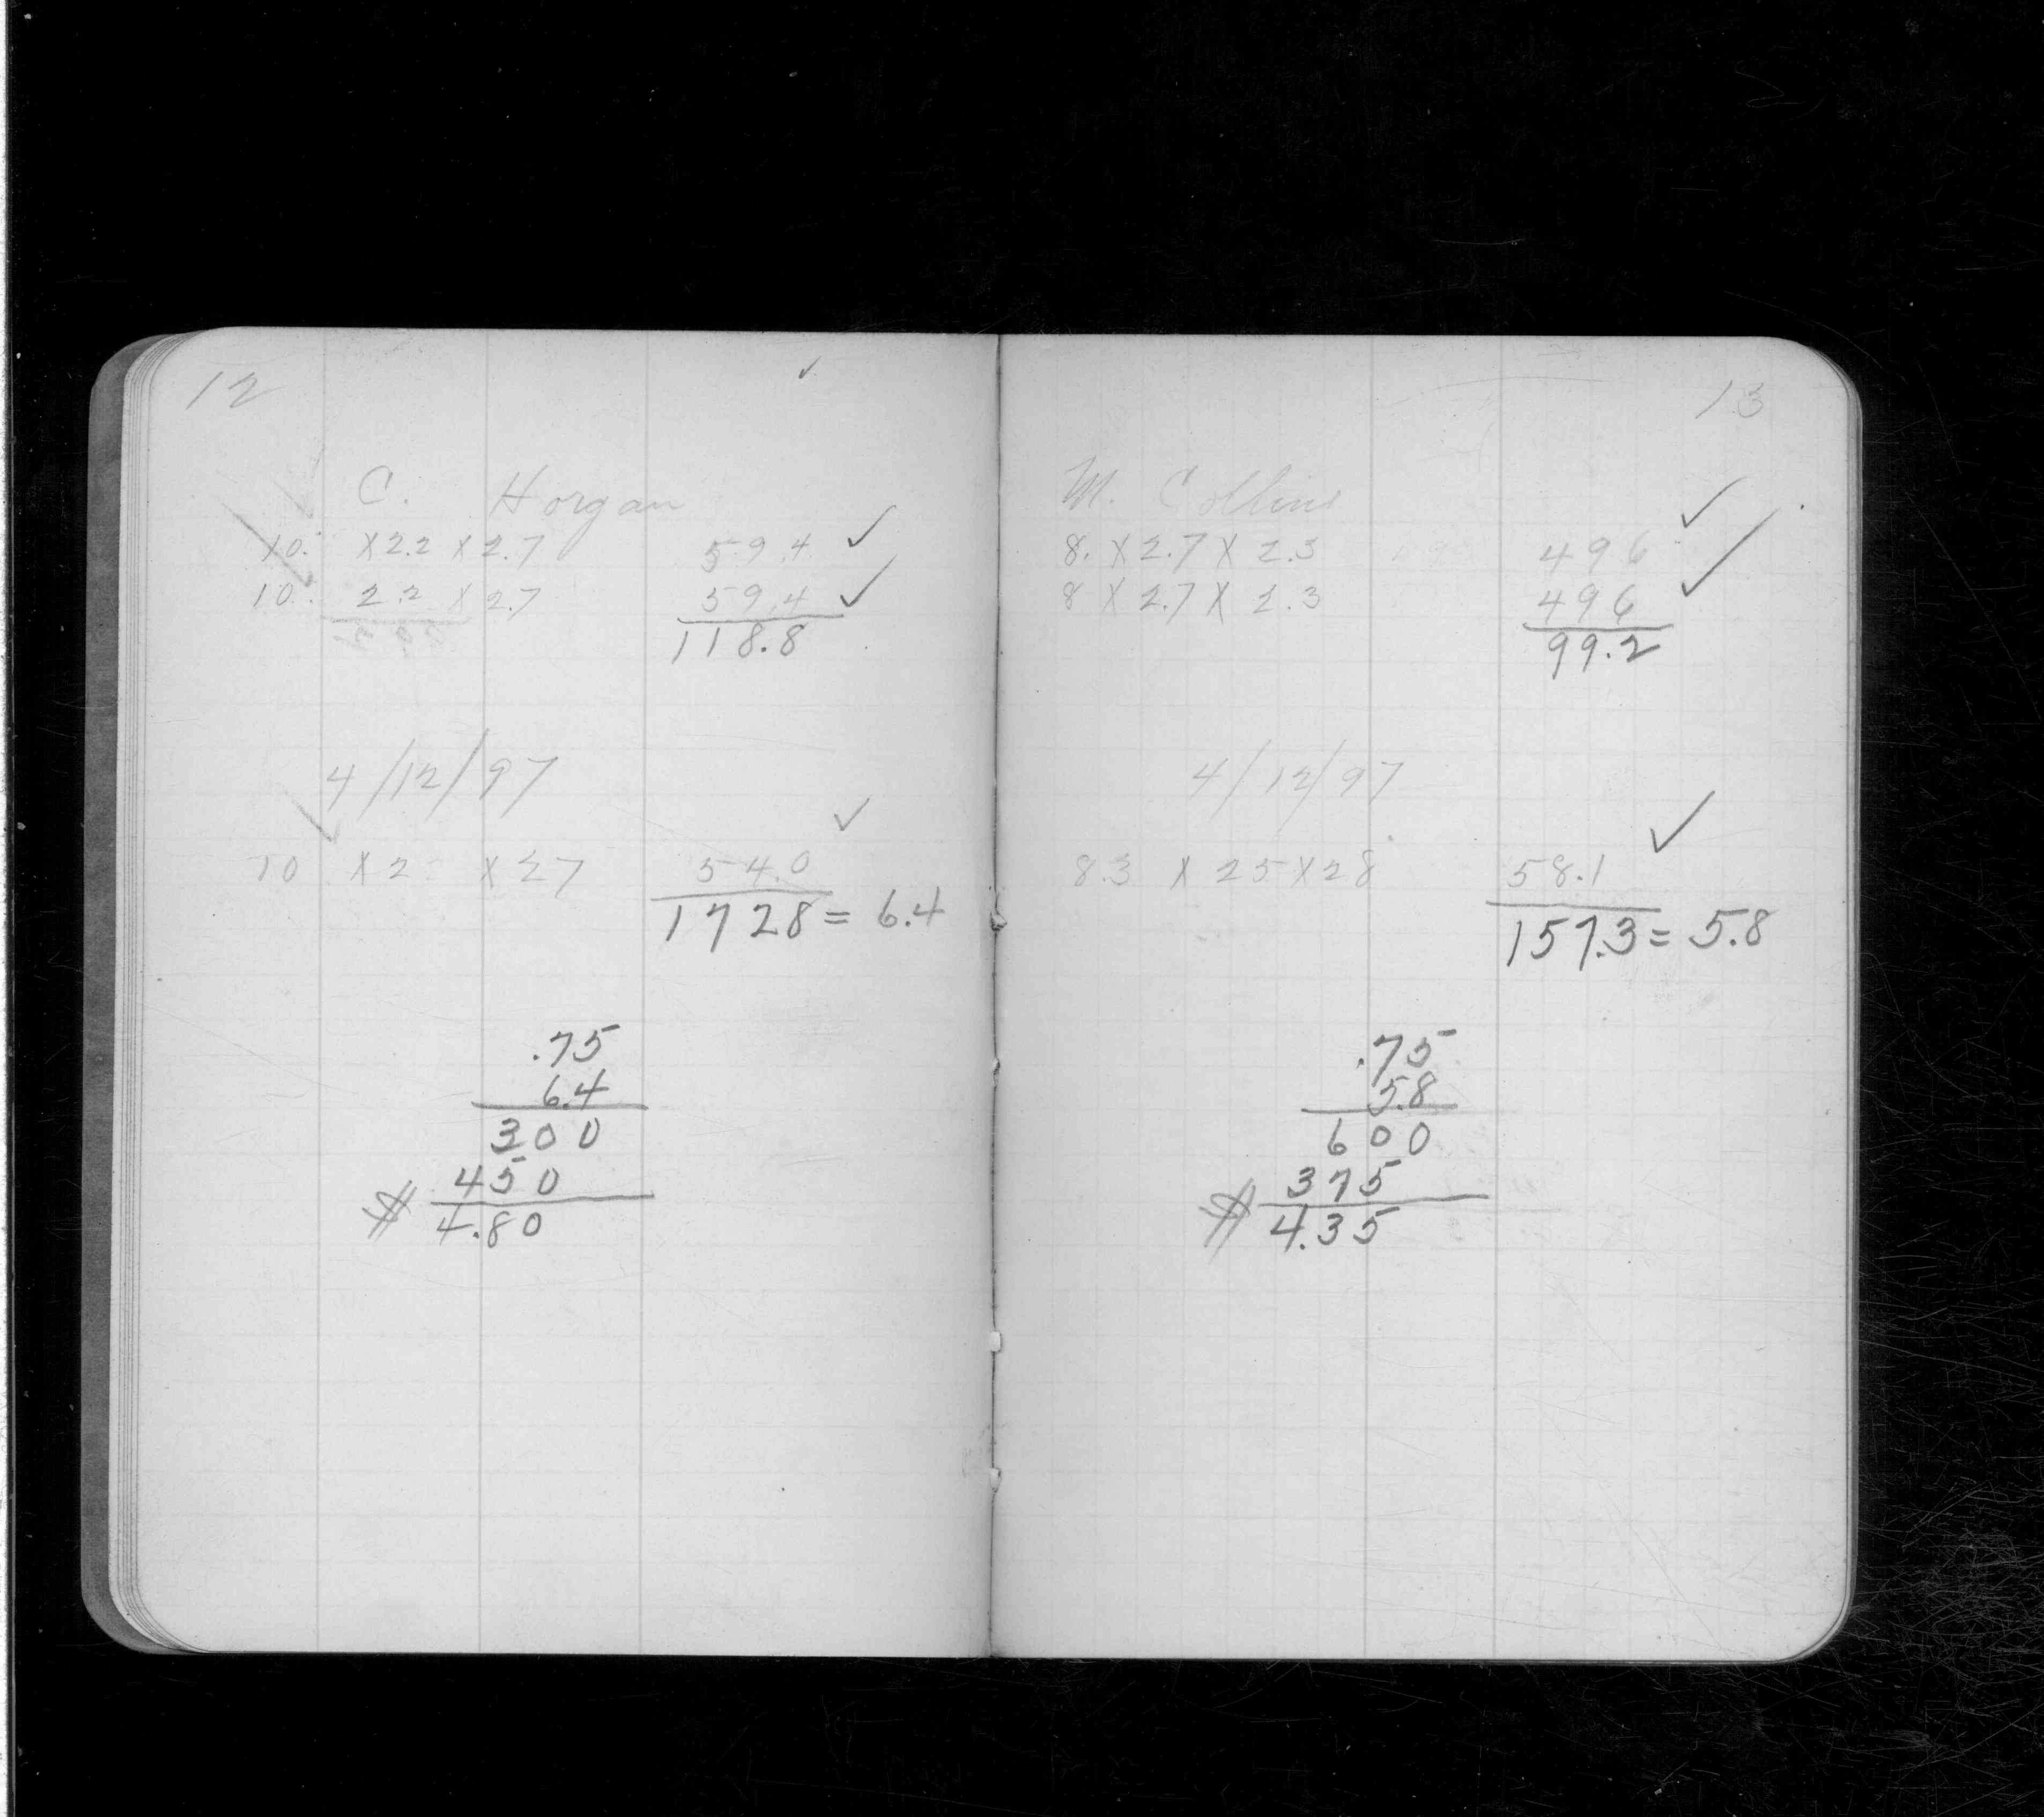 12
C. Horgan
10. X 2.2 X 2.7 59.4 ✓
10. 2.2 X 2.7 59.4 ✓
118.8
4/12/97
10 X 2 X 27 54.0 ✓
1728 = 6.4
.75
6.4
300
450
$ 4.80
13
M. Collins
8. X 2.7 X 2.3 496 ✓
8 X 2.7 X 2.3 496 ✓
99.2
4/12/97
8.3 X 25 X 28 58.1 ✓
157.3 = 5.8
.75
5.8
600
375
$ 4.35